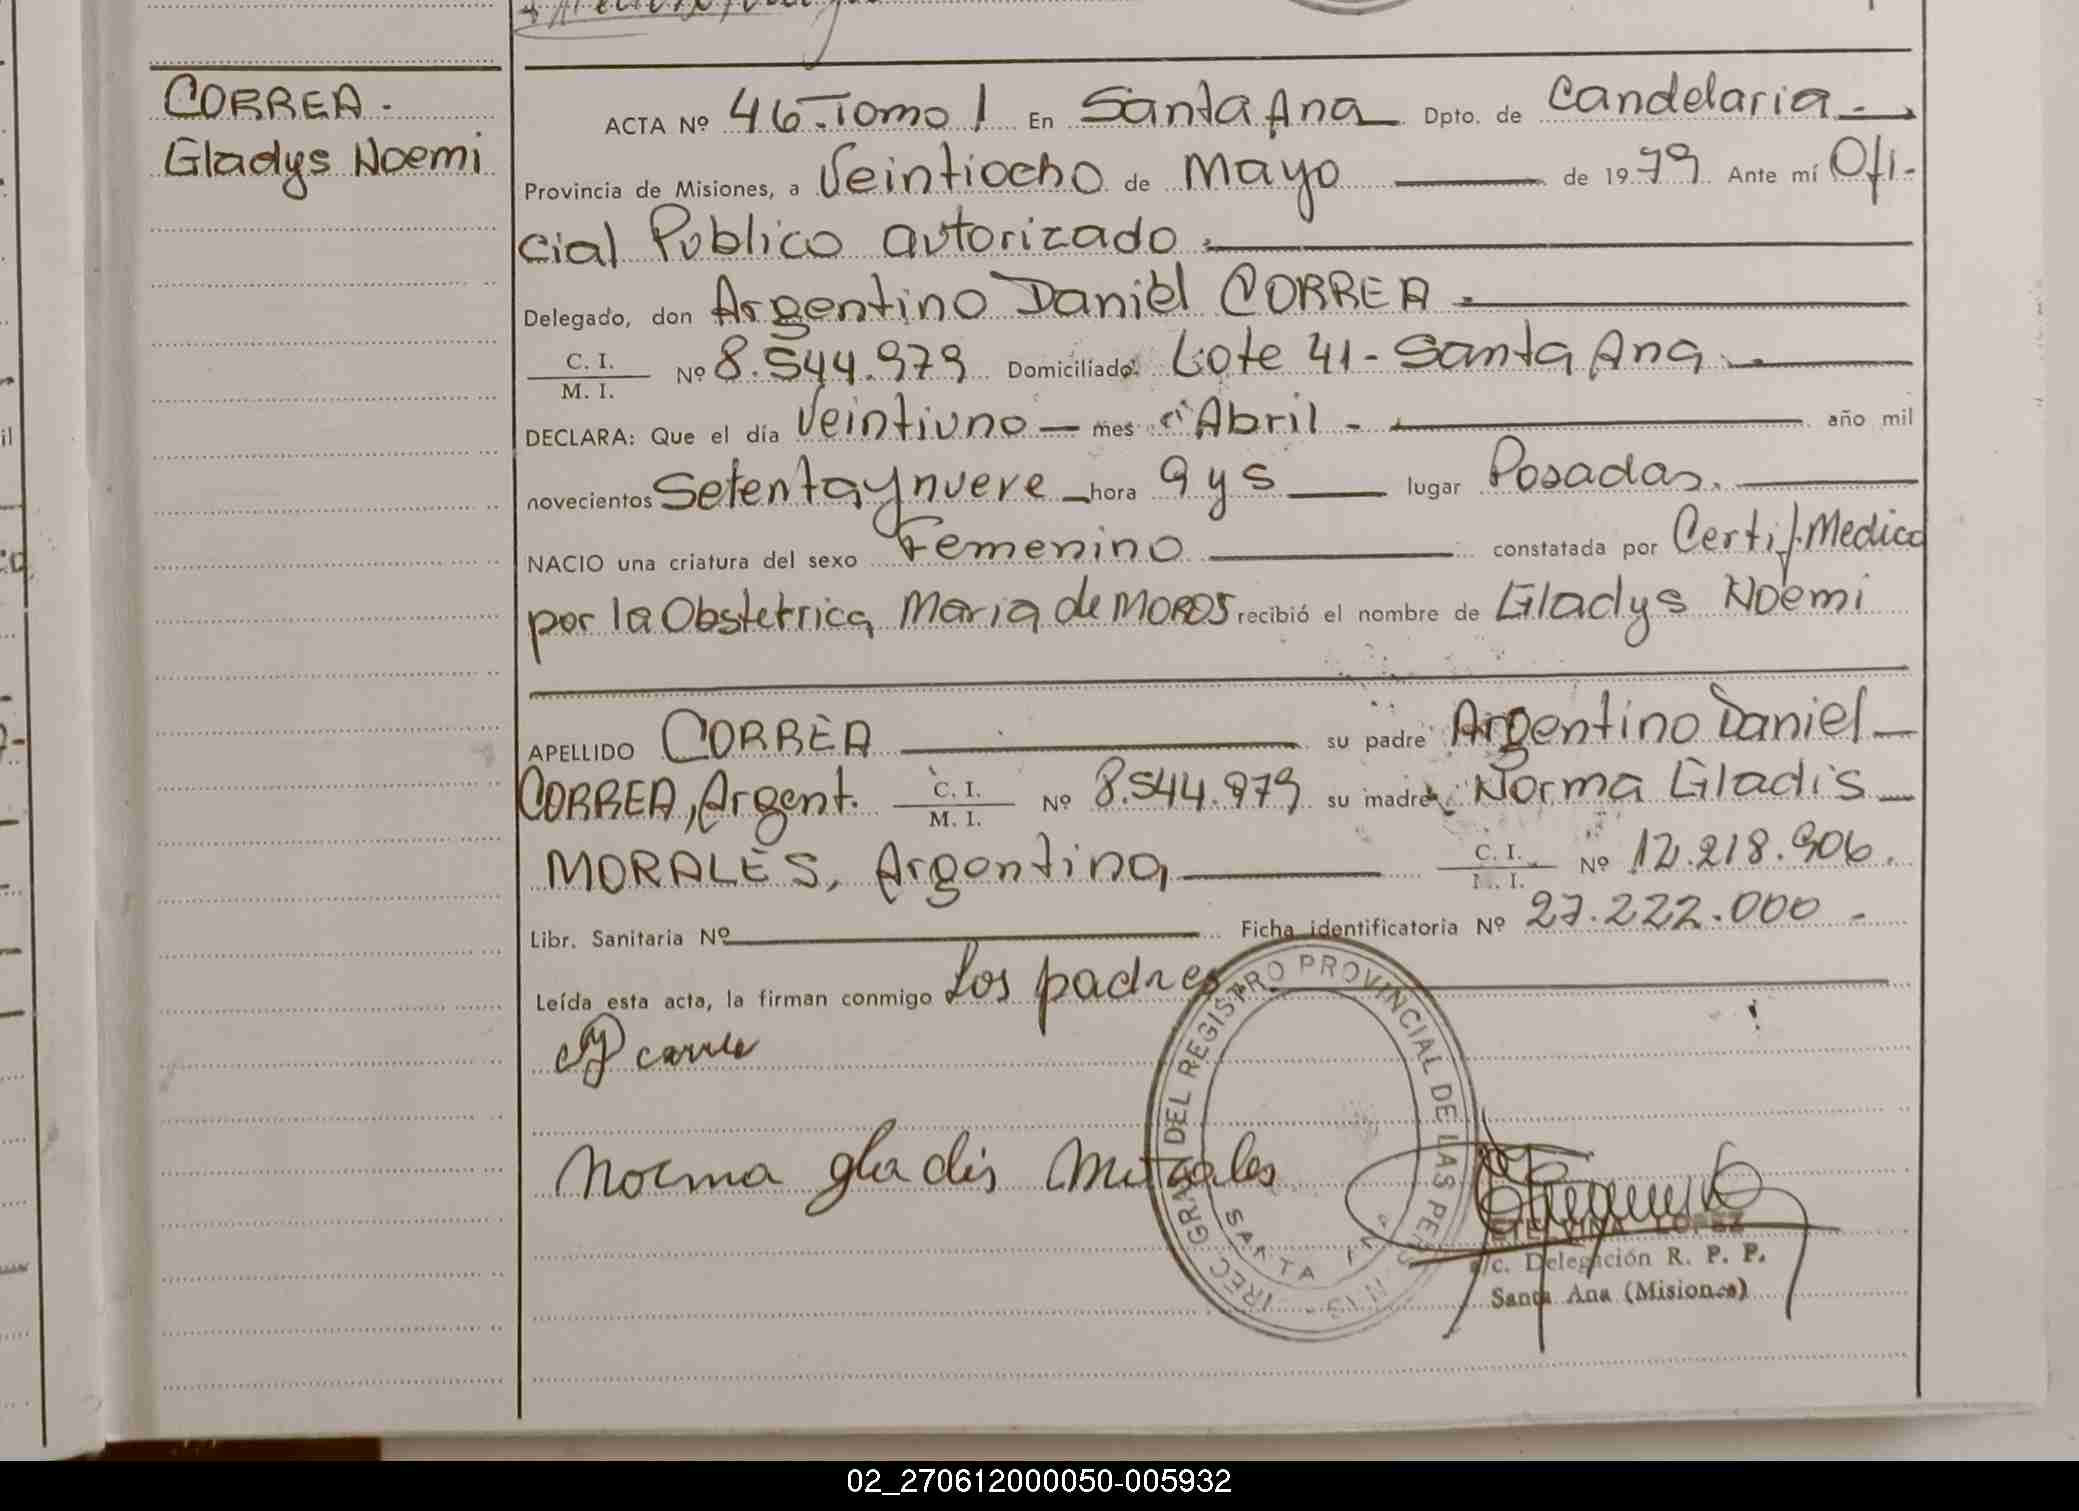 CORREA.
Gladys Noemi
ACTA Nº 46. Tomo 1 En Santa Ana Dpto. de Candelaria.
Provincia de Misiones, a Veintiocho de Mayo de 1979 Ante mí Ofi-
cial Publico autorizado.
Delegado, don Argentino Daniel CORREA.
C. I.
M. I.
Nº 8.544.979 Domiciliado: Lote 41 - Santa Ana
DECLARA: Que el día Veintiuno mes Abril año mil
novecientos Setenta y nueve hora 9 y 5 lugar Posadas.
NACIO una criatura del sexo Femenino constatada por Certif. Medico
por la Obstetrica Maria de MOROS recibió el nombre de Gladys Noemi
APELLIDO CORREA su padre Argentino Daniel
CORREA, Argent. C. I. / M. I. Nº 8.544.979 su madre Norma Gladis
MORALES, Argentina, C. I. / M. I. Nº 12.218.906.
Libr. Sanitaria Nº Ficha identificatoria Nº 27.222.000.
Leída esta acta, la firman conmigo Los padres
Norma gladis Morales
DEL REGISTRO PROVINCIAL DE LAS PERSONAS
SANTA ANA
ETELVINA LOPEZ
a/c. Delegación R. P. P.
Santa Ana (Misiones)
02_270612000050-005932